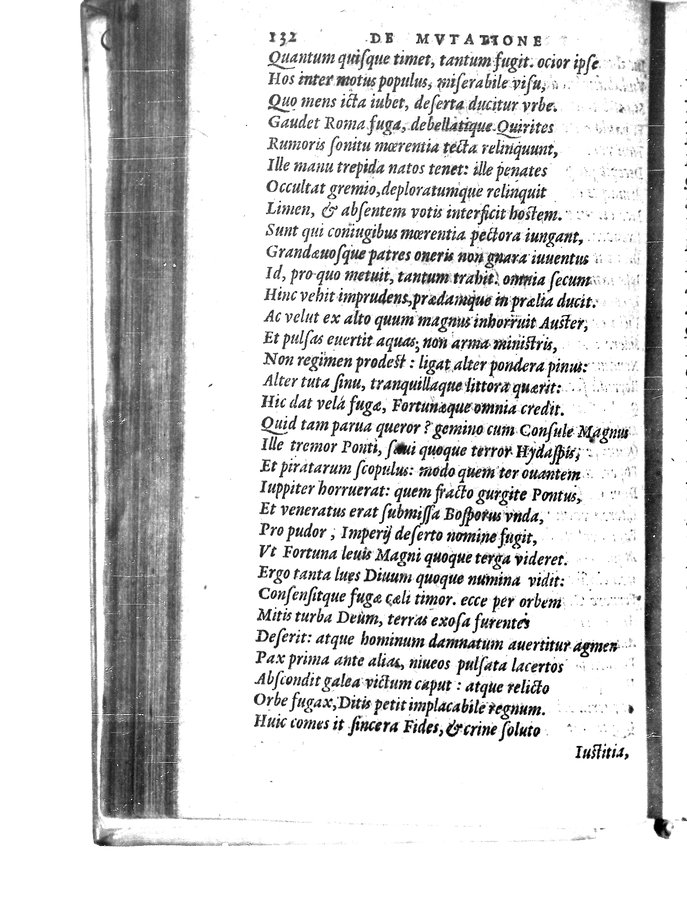 132 DE MVTATIONE
Quantum quisque timet, tantum fugit. ocior ipse
Hos inter motus populus, miserabile visu,
Quo mens icta iubet, deserta ducitur vrbe.
Gaudet Roma fuga, debellatique Quirites
Rumoris sonitu mœrentia tecta relinquunt,
Ille manu trepida natos tenet: ille penates
Occultat gremio, deploratumque relinquit
Limen, & absentem votis interficit hostem.
Sunt qui coniugibus mœrentia pectora iungant,
Grandæuosque patres oneris non gnara iuuentus
Id, pro quo metuit, tantum trahit. omnia secum
Hinc vehit imprudens, prædamque in prælia ducit.
Ac velut ex alto quum magnus inhorruit Auster,
Et pulsas euertit aquas, non arma ministris,
Non regimen prodest: ligat alter pondera pinus:
Alter tuta sinu, tranquillaque littora quærit:
Hic dat vela fugæ, Fortunæque omnia credit.
Quid tam parua queror? gemino cum Consule Magnus
Ille tremor Ponti, sæui quoque terror Hydaspis,
Et piratarum scopulus: modo quem ter ouantem
Iuppiter horruerat: quem fracto gurgite Pontus,
Et veneratus erat submissa Bosporus vnda,
Pro pudor, Imperij deserto nomine fugit,
Vt Fortuna leuis Magni quoque terga videret.
Ergo tanta lues Diuum quoque numina vidit:
Consensitque fugæ cæli timor. ecce per orbem
Mitis turba Deûm, terras exosa furentes
Deserit: atque hominum damnatum auertitur agmen
Pax prima ante alias, niueos pulsata lacertos
Abscondit galea victum caput: atque relicto
Orbe fugax, Ditis petit implacabile regnum.
Huic comes it sincera Fides, & crine soluto
Iustitia,